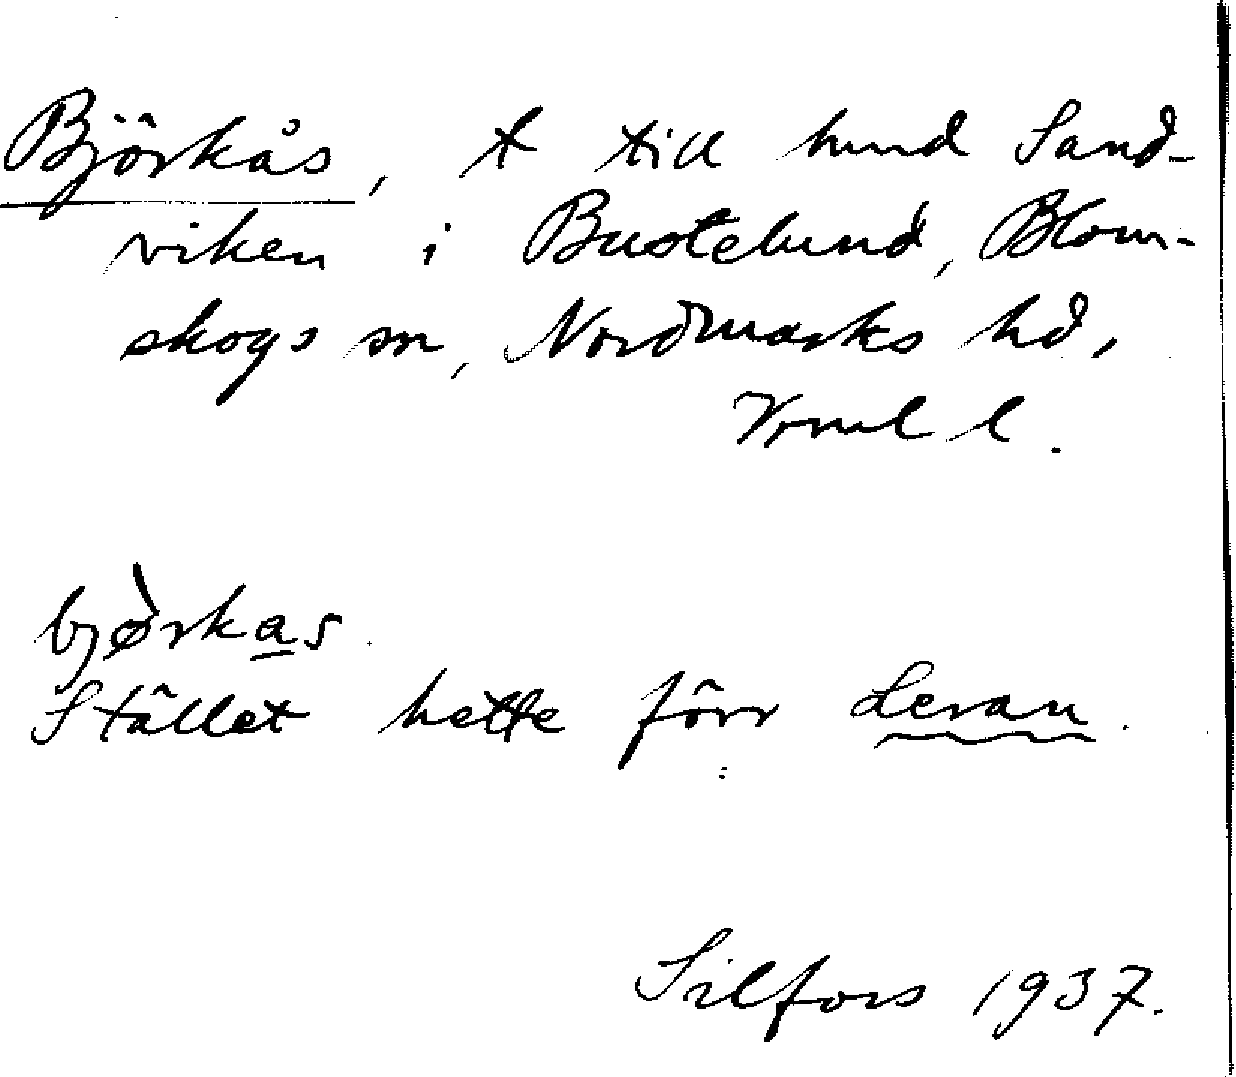 Björkås, t till hmnd Sand-
viken i Bustelund, Blom-
skogs sn, Nordmarks hd,
Vrml l.
bjørkas
Stället hette förr Leran.
Silfors 1937.